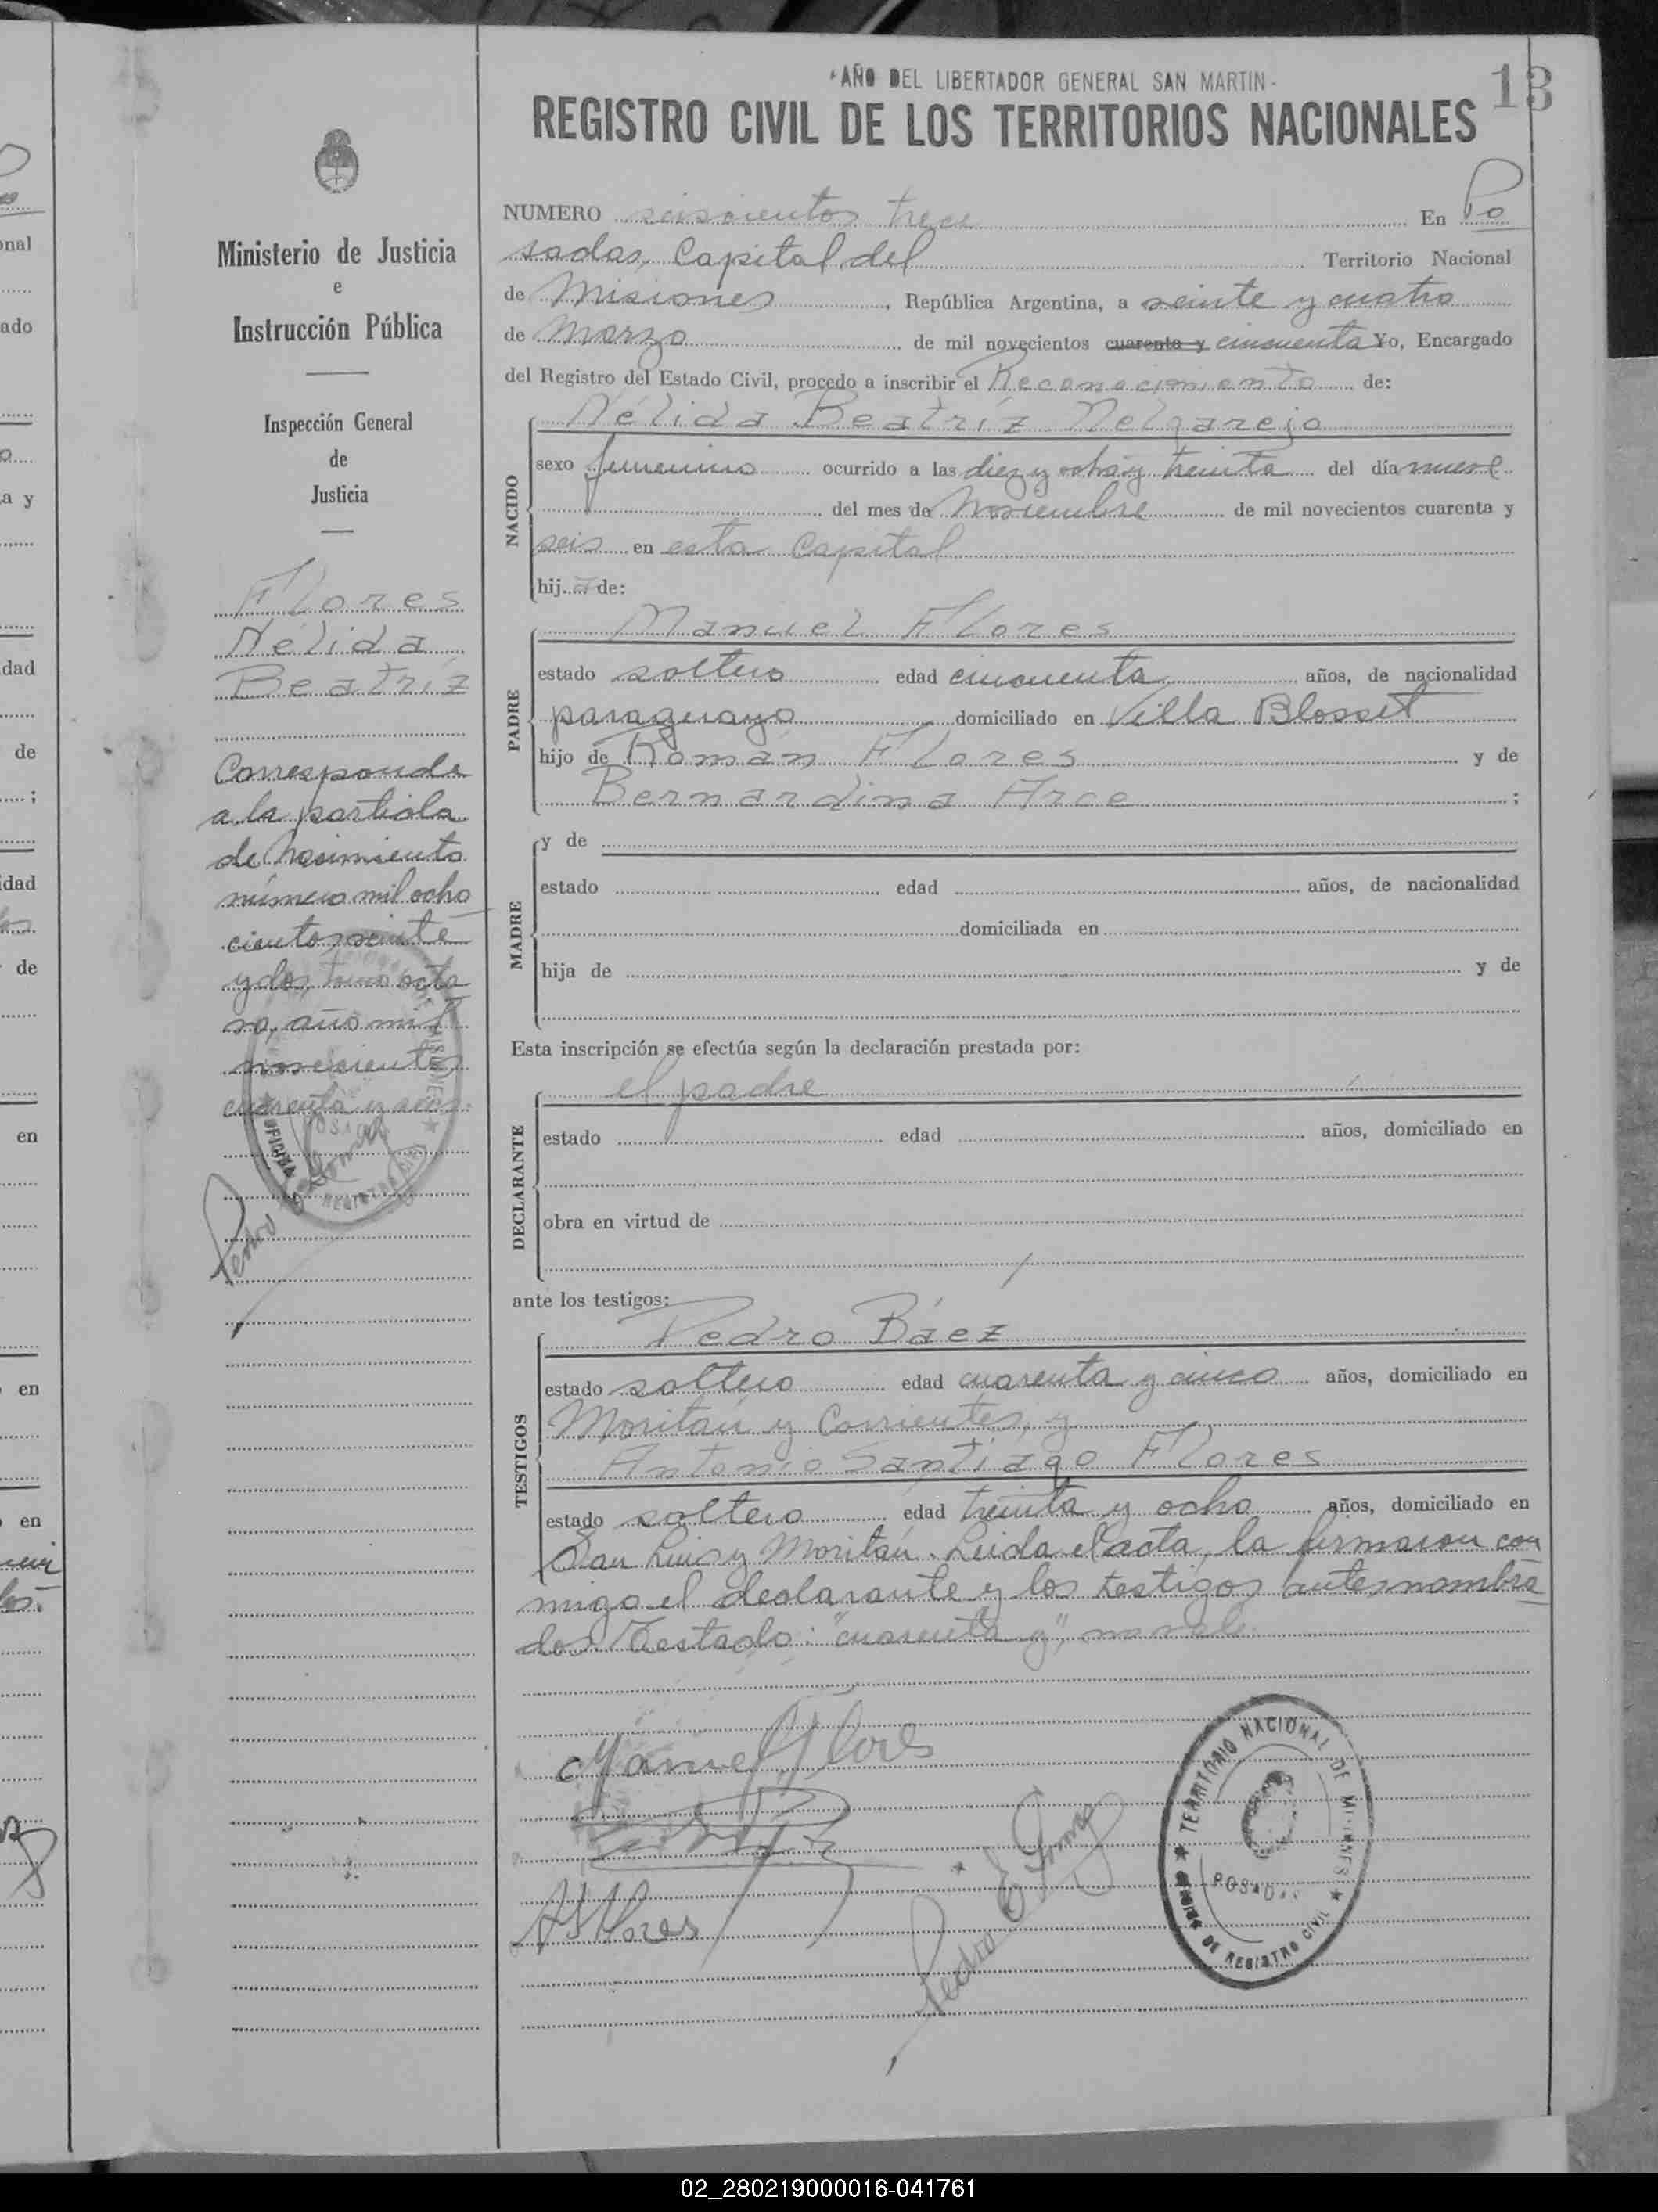 "AÑO DEL LIBERTADOR GENERAL SAN MARTIN"
13
REGISTRO CIVIL DE LOS TERRITORIOS NACIONALES
NUMERO seiscientos trece En Po
sadas, Capital del Territorio Nacional
de Misiones, República Argentina, a veinte y cuatro
de Marzo de mil novecientos cuarenta y cincuenta Yo, Encargado
del Registro del Estado Civil, procedo a inscribir el Reconocimiento de:
NACIDO
Nélida Beatríz Melgarejo
sexo femenino ocurrido a las diez y ocho y treinta del día nueve
del mes de Noviembre de mil novecientos cuarenta y
seis en esta Capital
hij a de:
PADRE
Manuel Flores
estado soltero edad cincuenta años, de nacionalidad
paraguayo, domiciliado en Villa Blosset
hijo de Román Flores y de
Bernardina Arce ;
MADRE
y de
estado edad años, de nacionalidad
domiciliada en
hija de y de
Esta inscripción se efectúa según la declaración prestada por:
DECLARANTE
el padre
estado edad años, domiciliado en
obra en virtud de
ante los testigos:
TESTIGOS
Pedro Báez
estado soltero edad cuarenta y cinco años, domiciliado en
Moritán y Corrientes, y
Antonio Santiago Flores
estado soltero edad treinta y ocho años, domiciliado en
San Luis y Moritán. Leida el acta, la firmaron con
migo el declarante y los testigos antes nombra
dos. Testado: "cuarenta y", no vale.
Manuel Flores
AS Flores
Pedro E
TERRITORIO NACIONAL DE MISIONES
POSADAS
OFICINA DE REGISTRO CIVIL
Ministerio de Justicia
e
Instrucción Pública
Inspección General
de
Justicia
Flores
Nélida
Beatríz
Corresponde
a la partida
de Nacimiento
número mil ocho
cientos veinte
y dos, tomo octa
vo, año mil
novecientos
cuarenta y seis.
Pedro
MISIONES
POSADAS
OFICINA REGISTRO CIVIL
nal
ado
a y
dad
de
;
idad
de
en
en
en
02_280219000016-041761